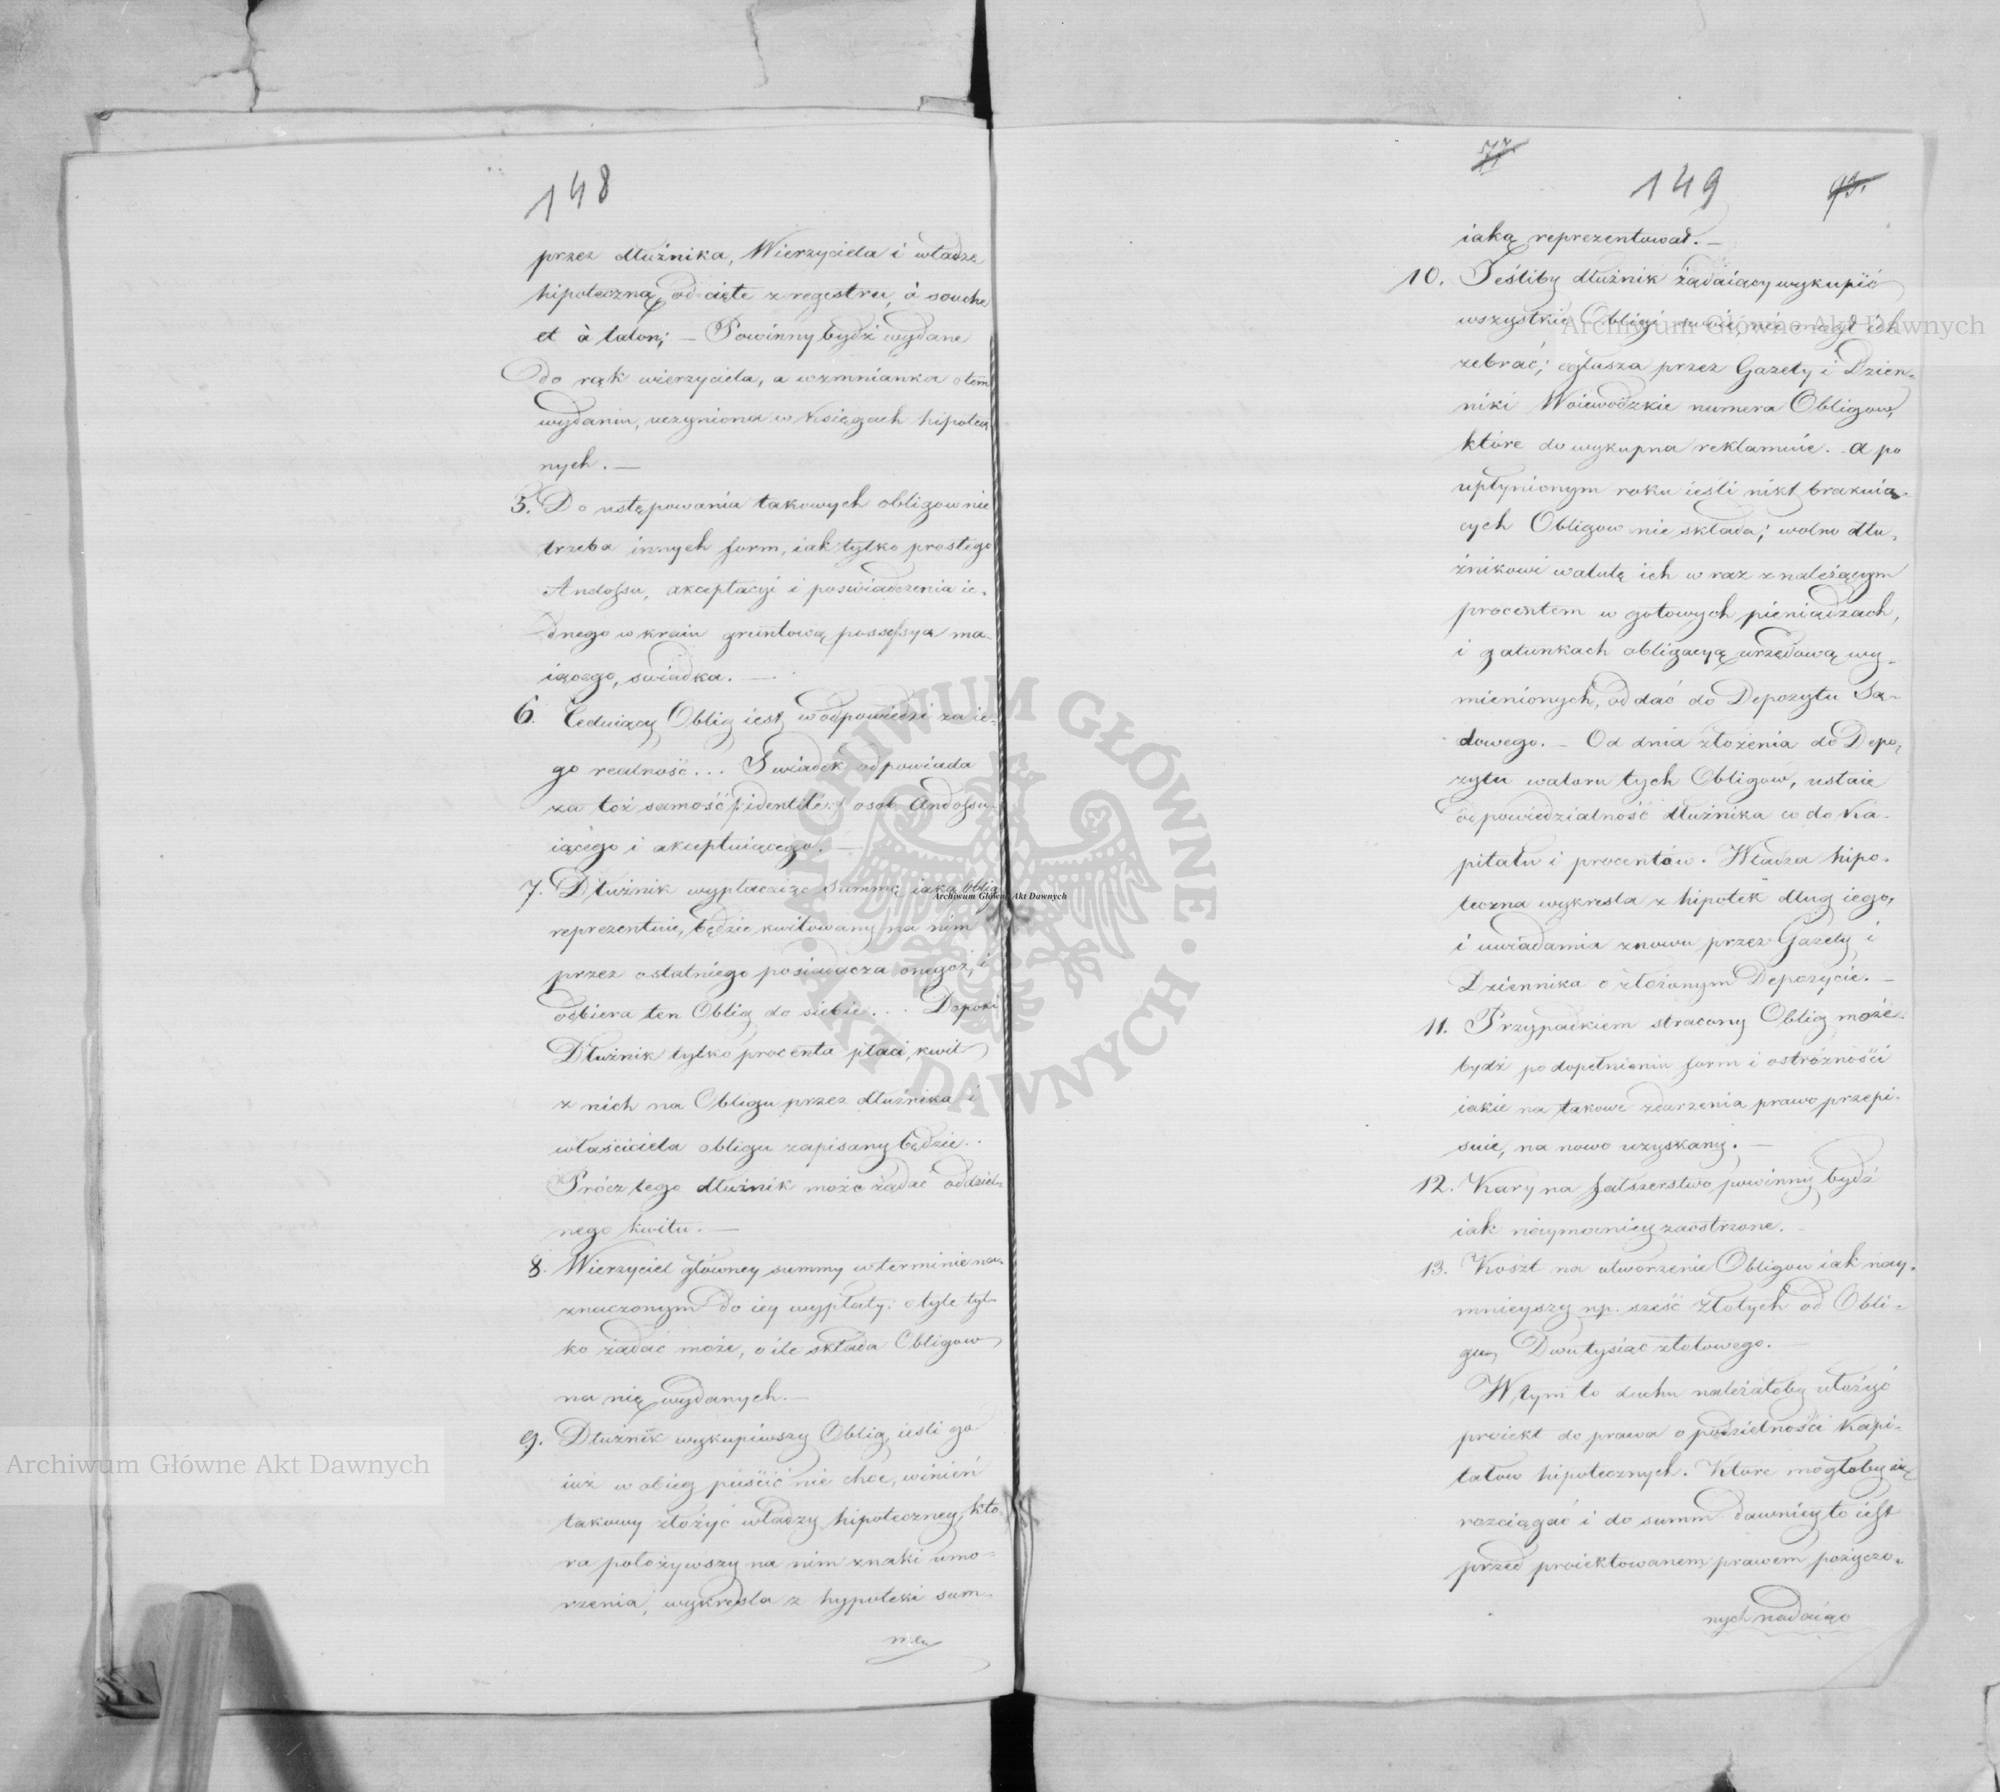 148
przez dłużnika, Wierzyciela i władzę
hipoteczną, odcięte z regestru, à souche
et à talon; — Powinny bydź wydane
do rąk wierzyciela, a wzmnianka o tem
wydaniu, uczyniona w Księgach hipotecz
nych. —
5. Do ustępowania takowych obligow nie
trzeba innych form, iak tylko prostego
Andossu, akceptacyi i poswiadczenia ie-
dnego w kraiu gruntową possessyą ma-
iącego, swiadka. —
6. Ceduiący Oblig iest w odpowiedzi za ie-
go realność... Swiadek odpowiada
za toż samość /:identité:/ osob Andossu-
iącego i akceptuiącego. —
7. Dłużnik wypłacaiąc Summę iaką Oblig
reprezentuie, będzie kwitowany na nim
przez ostatniego posiadacza onegoż, i
odbiera ten Oblig do siebie... Dopoki
Dłużnik tylko procenta płaci, kwit
z nich na Obligu przez dłużnika i
właściciela obligu zapisany będzie..
Prócz tego dłużnik może żądać oddziel-
nego kwitu. —
8. Wierzyciel główney summy w terminie na-
znaczonym do iey wypłaty: o tyle tyl-
ko żądać może, o ile składa Obligow
na nię wydanych. —
9. Dłużnik wykupiwszy Oblig, iesli go
iuż w obieg puścić nie chce, winień
takowy złożyć władzy hipoteczney, kto-
ra położywszy na nim znaki umo-
rzenia, wykreśla z hypoteki sum-
mę
77.
149
93.
iaką reprezentował. —
10. Jeśliby dłużnik żądaiący wykupić
wszystkie Obligi swoie, nie mógł ich
zebrać; ogłasza przez Gazety i Dzien-
niki Woiewódzkie numera Obligow,
które do wykupna reklamuie. a po
upłynionym roku ieśli nikt brakuią-
cych Obligow nie składa; wolno dłu-
żnikowi walutę ich wraz z należącym
procentem w gotowych pieniądzach,
i gatunkach obligacyą urzędową wy-
mienionych, oddać do Depozytu Są-
dowego. — Od dnia złożenia do Depo-
zytu waloru tych Obligow, ustaie
odpowiedzialność dłużnika co do Ka-
pitału i procentów. Władza hipo-
teczna wykresla z hipotek dług iego,
i uwiadamia znowu przez Gazety i
Dziennika o złożonym Depozycie. —
11. Przypadkiem stracony Oblig może
bydź po dopełnieniu form i ostróżności
iakie na takowe zdarzenia prawo przepi-
suie, na nowo uzyskany. —
12. Kary na fałszerstwo powinny bydź
iak naymocniey zaostrzone. —
13. Koszt na utworzenie Obligow iak nay-
mnieyszy np. sześć Złotych od Obli-
gu, Dwutysiąc złotowego. —
W tym to duchu należałoby ułożyć
proiekt do prawa o podzielności Kapi-
tałow hipotecznych. Ktore mogłoby się
rozciągać i do summ dawniey to iest
przed proiektowanem prawem pożyczo-
nych nadaiąc
Archiwum Główne Akt Dawnych
Archiwum Główne Akt Dawnych
Archiwum Główne Akt Dawnych
ARCHIWUM GŁÓWNE · AKT DAWNYCH ·